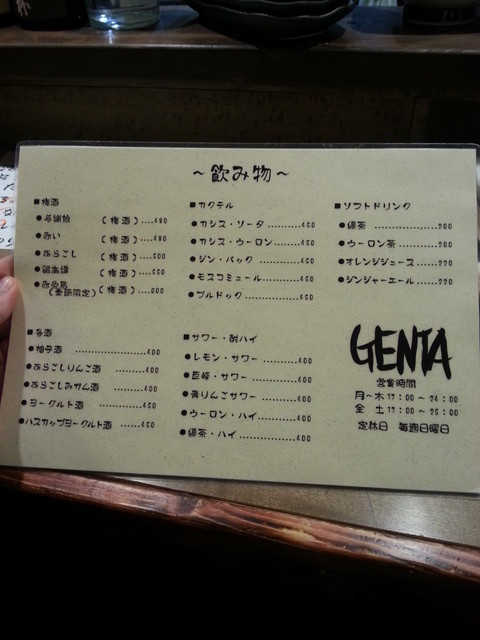 ～飲み物～
■梅酒
（梅酒）....480
●赤い （梅酒）....480
●あらこし （梅酒）....500
（梅酒）....550
（季節限定） （梅酒）....600
■カクテル
●カシス・ソーダ..........450
●カシス・ウーロン.........450
●ジン・バック..........450
●モスコミュール..........450
●ブルドック..........450
■ソフトドリンク
●緑茶..........200
●ウーロン茶..........200
●オレンジジュース......220
●ジンジャーエール......220
●柚子酒..........400
●あらごしりんご酒......400
●あらごしみかん酒......400
●ヨーグルト酒..........400
●ハスカップヨーグルト酒......450
■サワー・酎ハイ
●レモン・サワー..........400
●巨峰・サワー..........400
●青りんごサワー..........400
●ウーロン・ハイ..........400
●緑茶・ハイ..........400
GENTA
営業時間
月～木 17：00 ～ 24：00
金 土 17：00 ～ 25：00
定休日 毎週日曜日